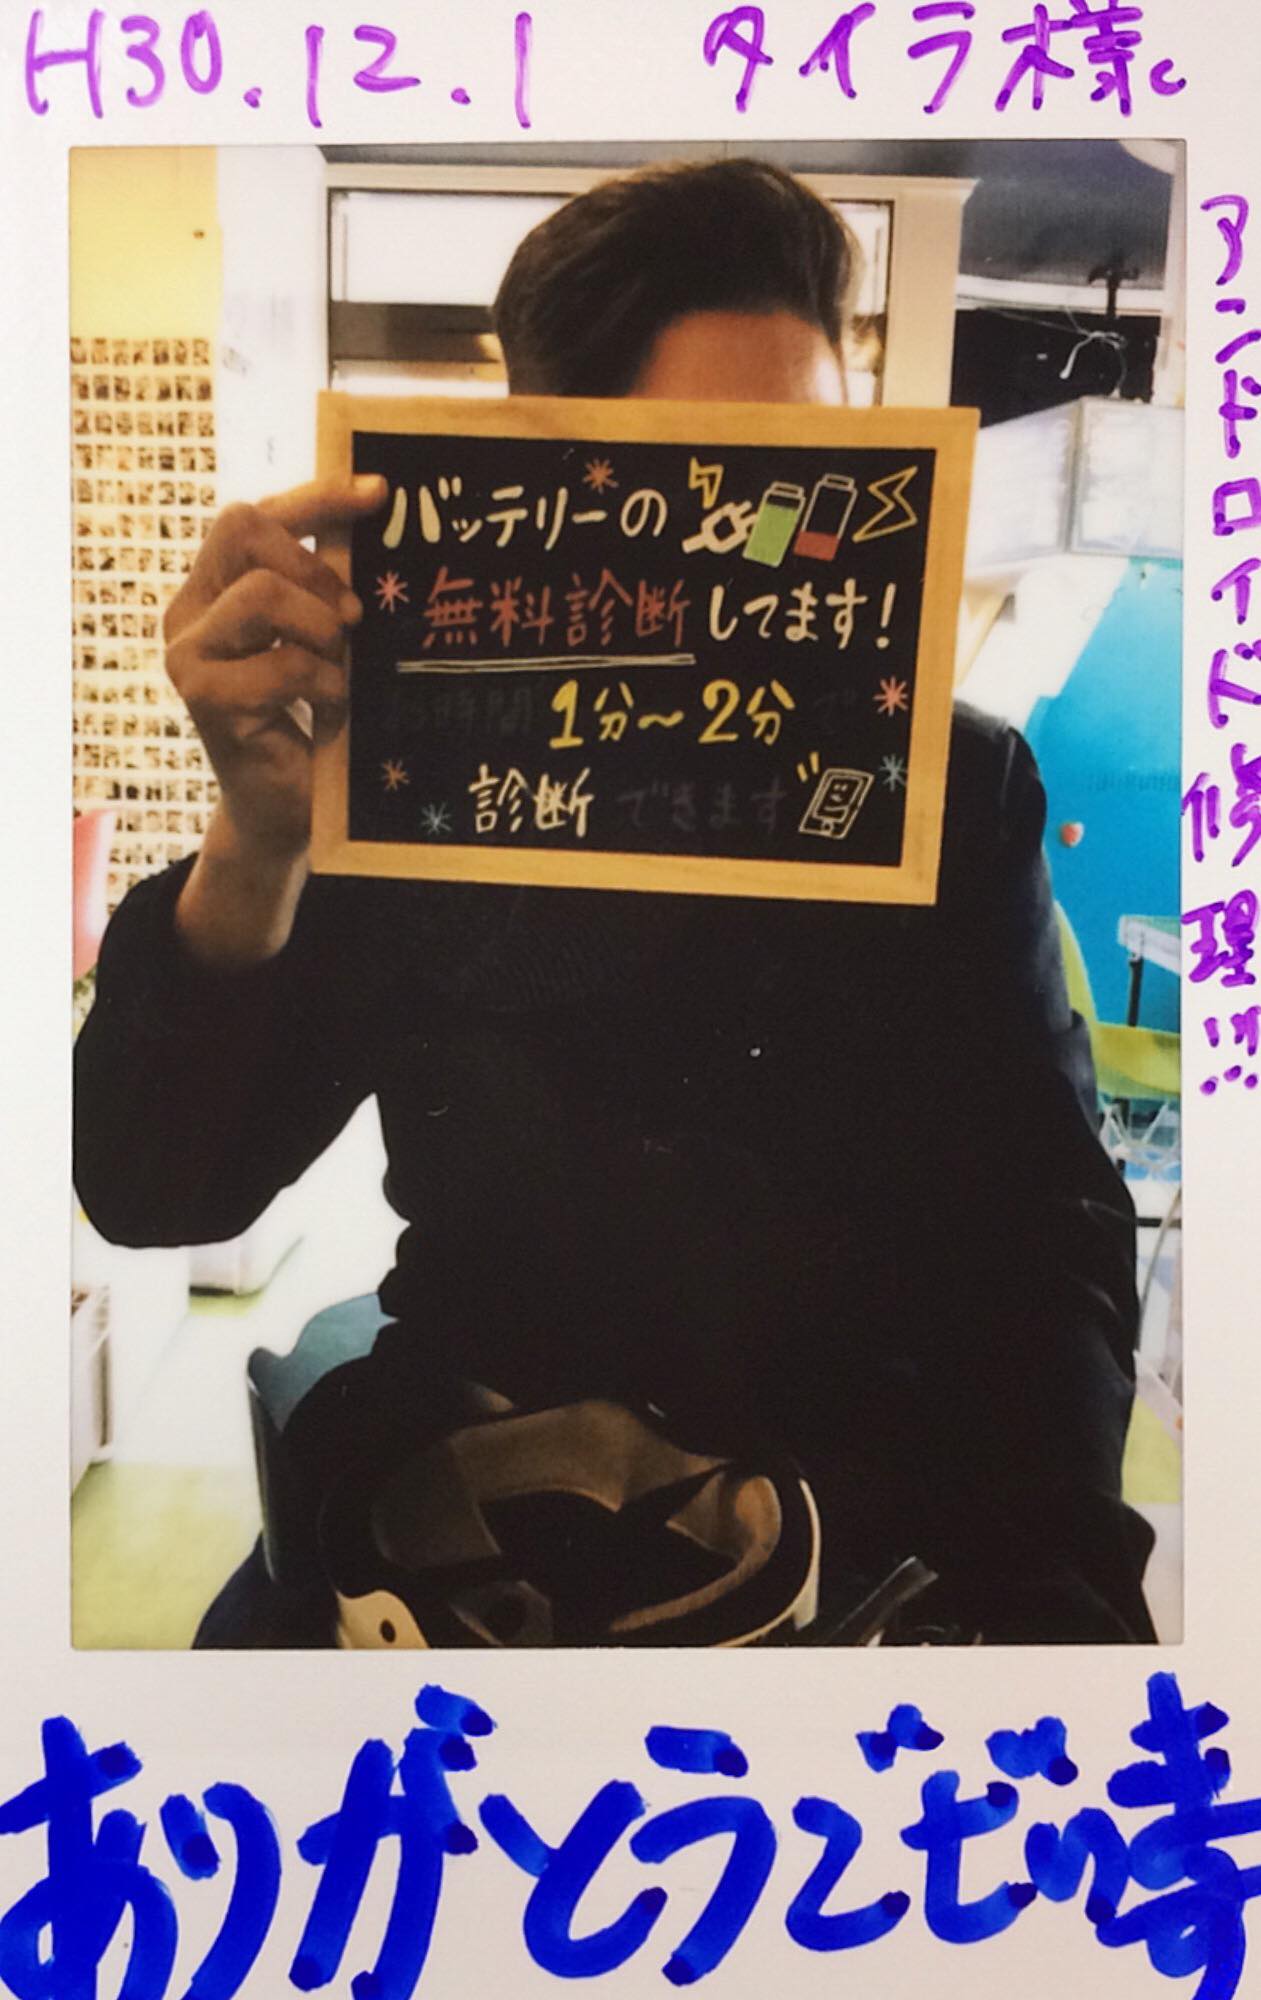 H30.12.1 タイラ様。
アンドロイド修理!!!
バッテリーの
無料診断してます!
1分～2分
診断できます
ありがとうございます